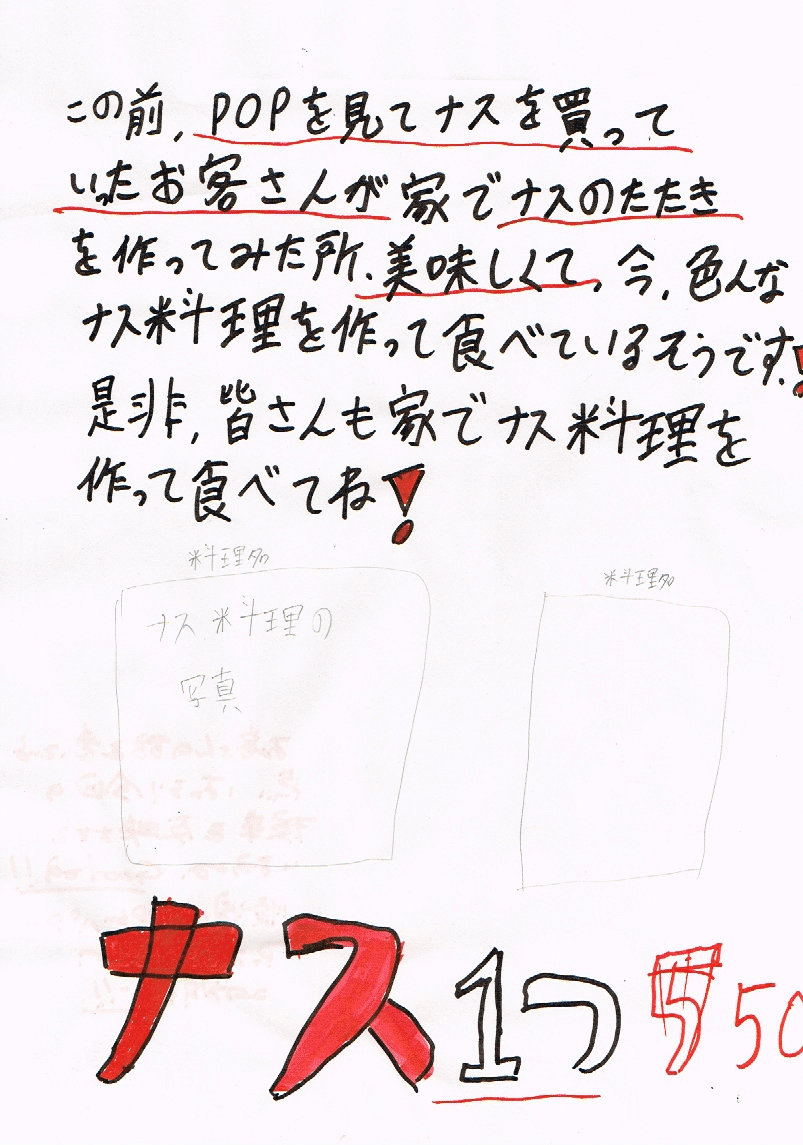 この前,POPを見てナスを買って
いったお客さんが家でナスのたたき
を作ってみた所、美味しくて、今,色んな
ナス料理を作って食べているそうです!
是非,皆さんも家でナス料理を
作って食べてね!
料理名
料理名
ナス料理の
写真
ナス1つ 50